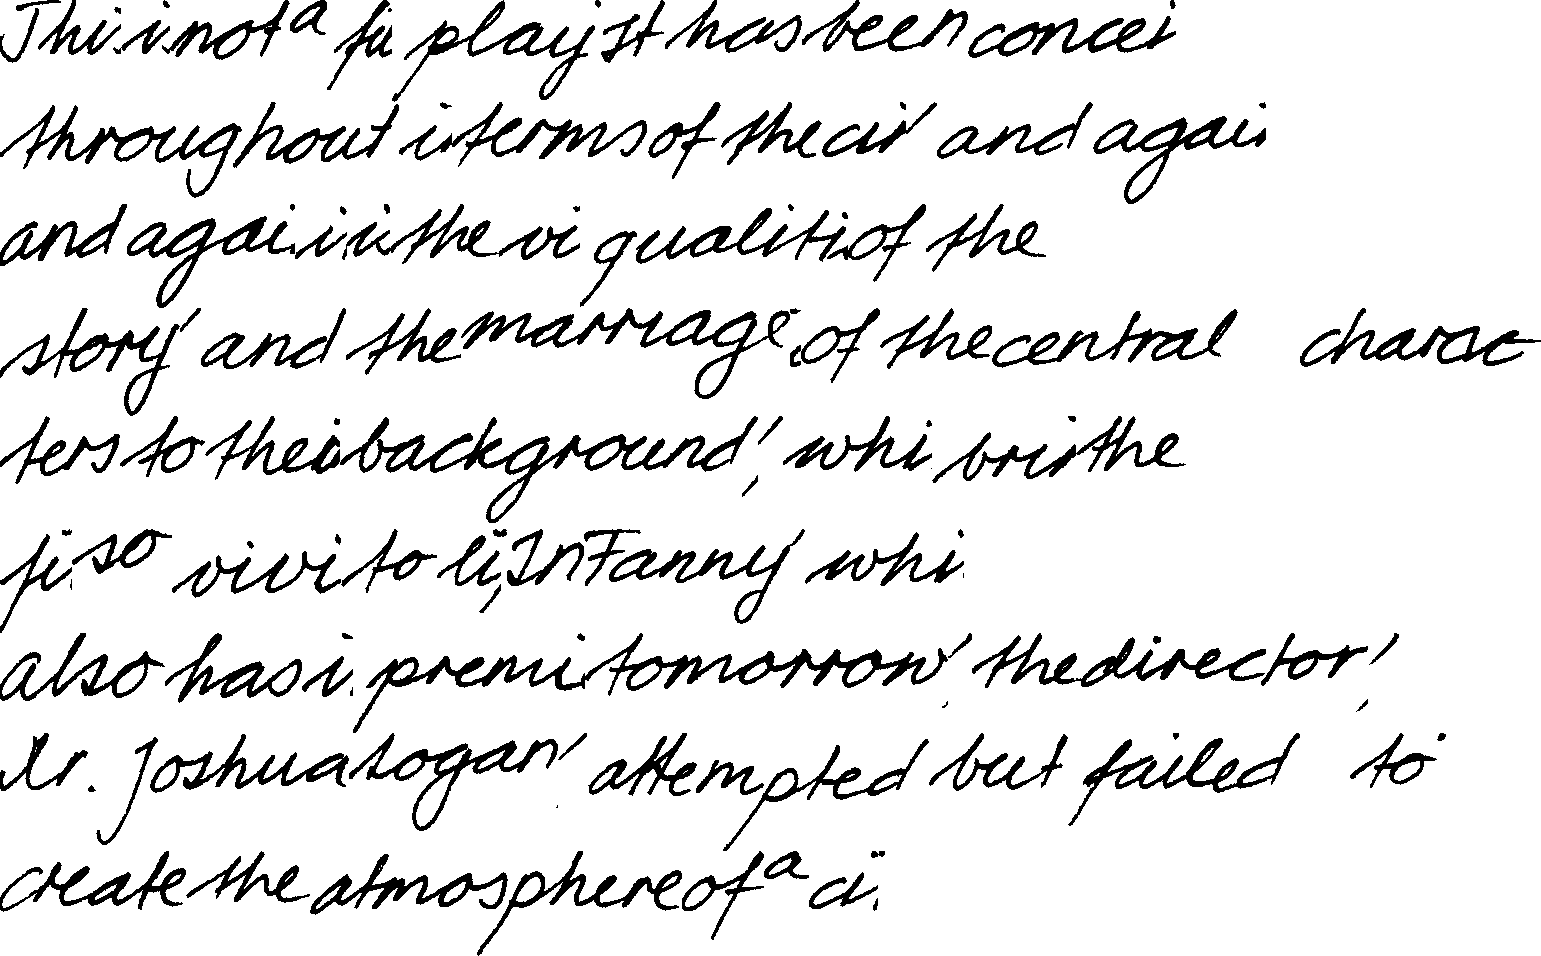 Thi i not a fi play It has been concei
throughout i terms of the ci and agai
and agai i i the vi qualiti of the
story and the marriage of the central charac
ters to thei background, whi bri the
fi so vivi to li, In Fanny whi
also has i premi tomorrow, the director,
Mr. Joshua Logan, attempted but failed to
create the atmosphere of a ci.